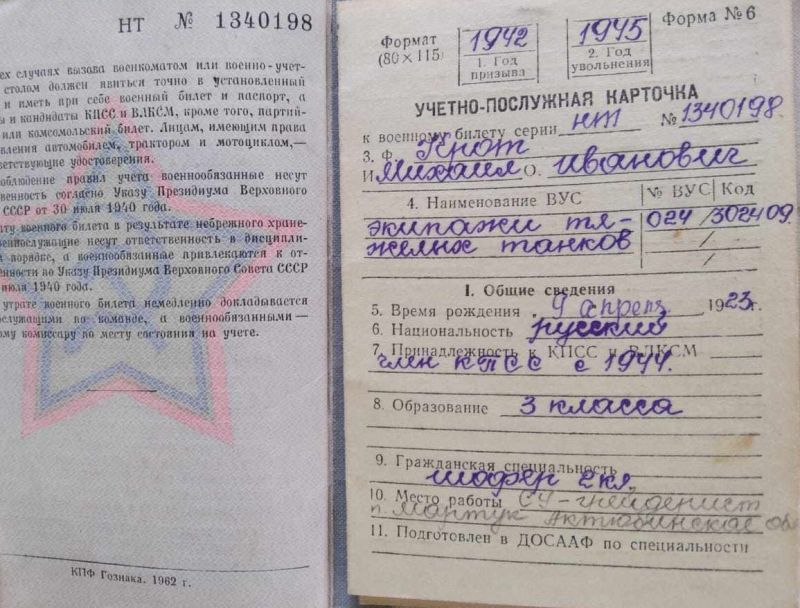 НТ № 1340198
ех случаях вызова военкоматом или военно-учет-
столом должен явиться точно в установленный
и иметь при себе военный билет и паспорт, а
ы и кандидаты КПСС и ВЛКСМ, кроме того, партий-
или комсомольский билет. Лицам, имеющим права
вления автомобилем, трактором и мотоциклом,—
ветствующие удостоверения.
облюдение правил учета военнообязанные несут
венность согласно Указу Президиума Верховного
СССР от 30 июля 1940 года.
ату военного билета в результате небрежного хране-
еннослужащие несут ответственность в дисципли-
порядке, а военнообязанные привлекаются к от-
нности по Указу Президиума Верховного Совета СССР
июля 1940 года.
утрате военного билета немедленно докладывается
служащими по команде, а военнообязанными —
ому комиссару по месту состояния на учете.
КПФ Гознака. 1962 г.
Форма № 6
Формат
(80×115)
1942
1. Год
призыва
1945
2. Год
увольнения
УЧЕТНО-ПОСЛУЖНАЯ КАРТОЧКА
к военному билету серии НТ № 1340198
3. Ф. Крот
И. Михаил О. Иванович
4. Наименование ВУС № ВУС Код
экипажи тя- 024/302409.
желых танков
I. Общие сведения
5. Время рождения 9 апреля 1923 г.
6. Национальность русский
7. Принадлежность к КПСС и ВЛКСМ
член КПСС с 1944.
8. Образование 3 класса
9. Гражданская специальность
шофер 2 кл.
10. Место работы СУ - грейдерист
п. Мартук Актюбинская об
11. Подготовлен в ДОСААФ по специальности